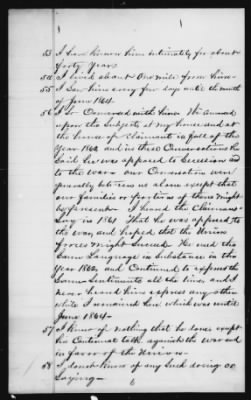 53 I have known him intimately for about
forty Years
54 I lived about One mile from him
55 I saw him every few days until the month
of June 1864.
56 I so Conversed with him. We
upon the Subject at my house and at
the house of claimant in fall of the
Year 1860, and in these Conversations he
Said he was opposed to Secession and
to the war our Conversation were
generally between us alone except that
our families or portions of them might
be present. I heard the Claimant
Say in 1861 That he was opposed to
the war, and hoped that the Union
forces might Succeed. He used the
Same Language in Substance in the
Year 1862, and Continued to express the
Same Sentiments all the time, and I
never heard him express any other
while I remained here which was until
June 1864
57 I know of nothing that he done except
his Continual talk against the war and
in favor of the Union
58 I don't know of any Such doing or
Saying
6